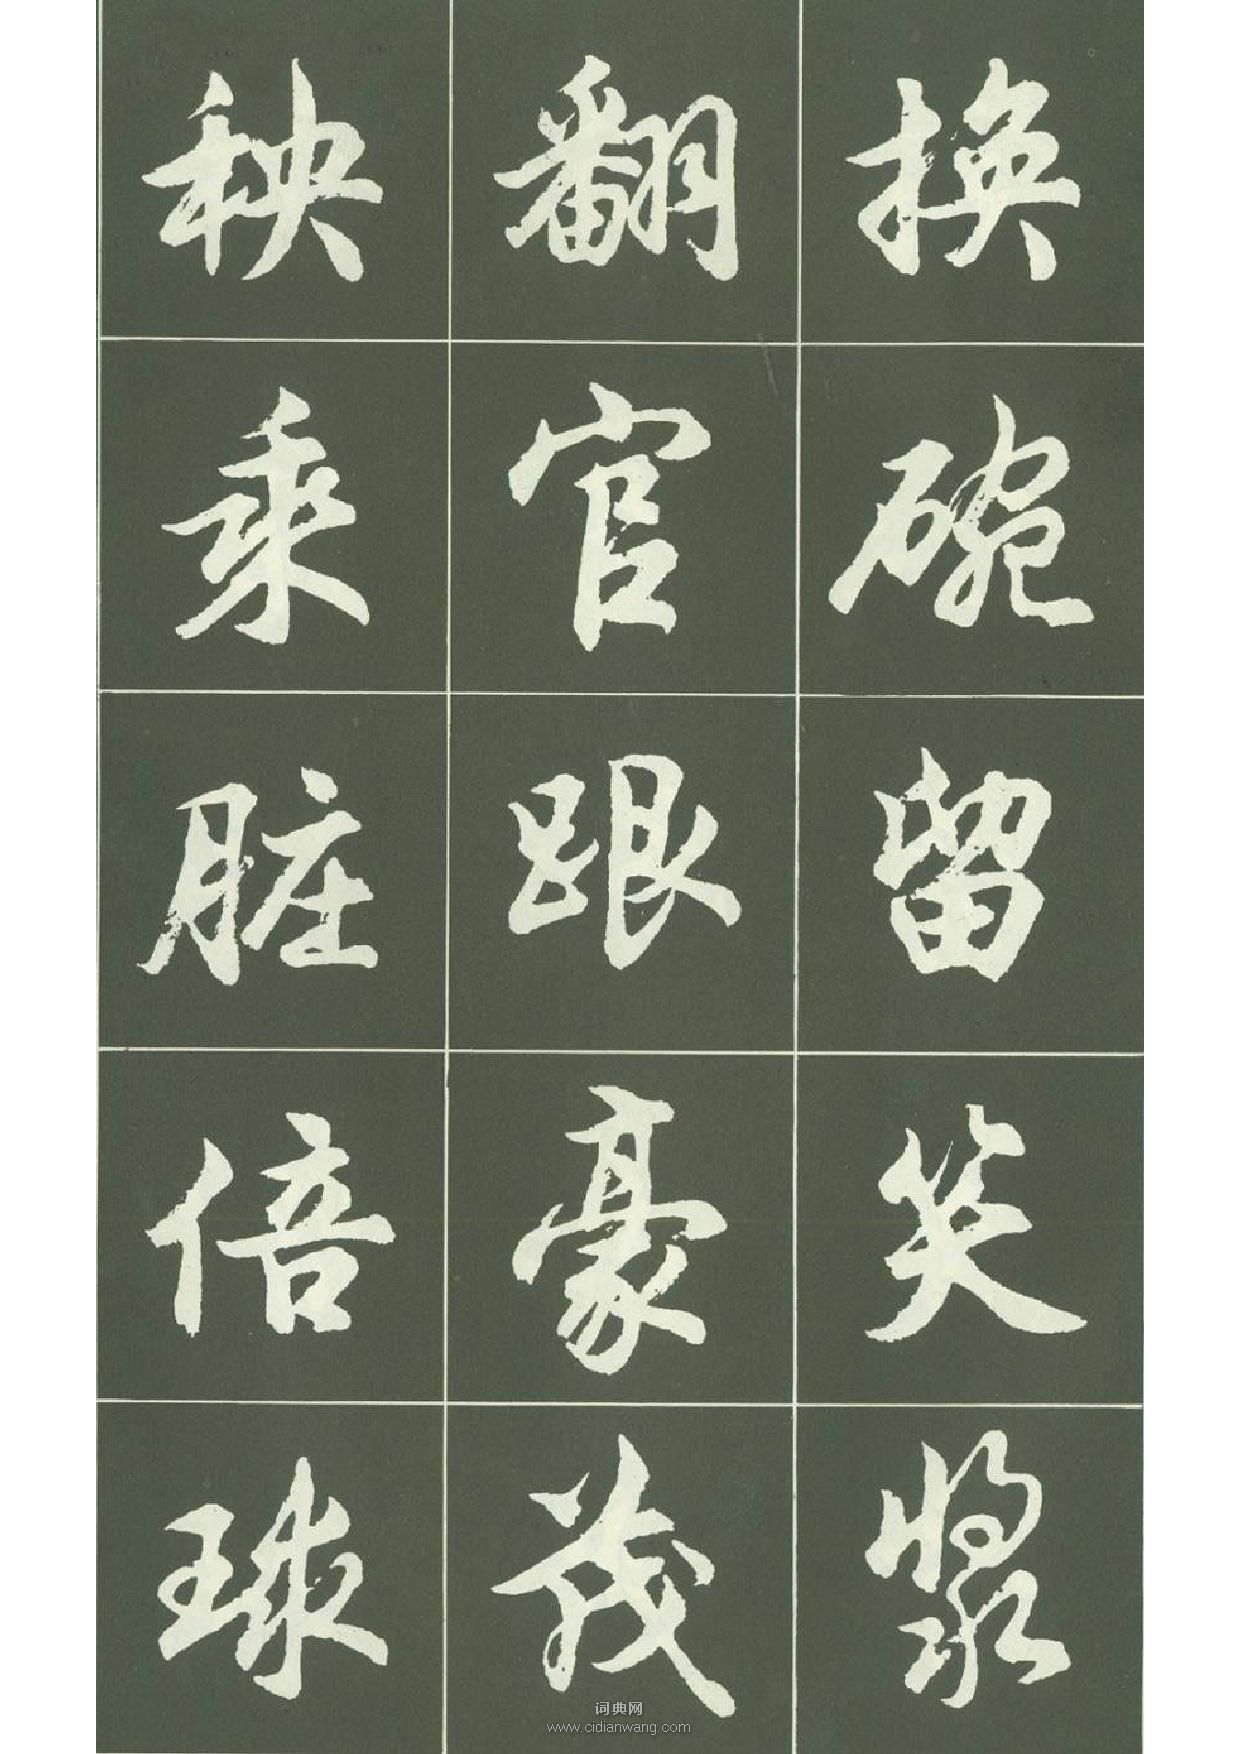 换碗留笑浆
翻官跟豪茂
秧乘脏倍球
词典网
www.cidianwang.com